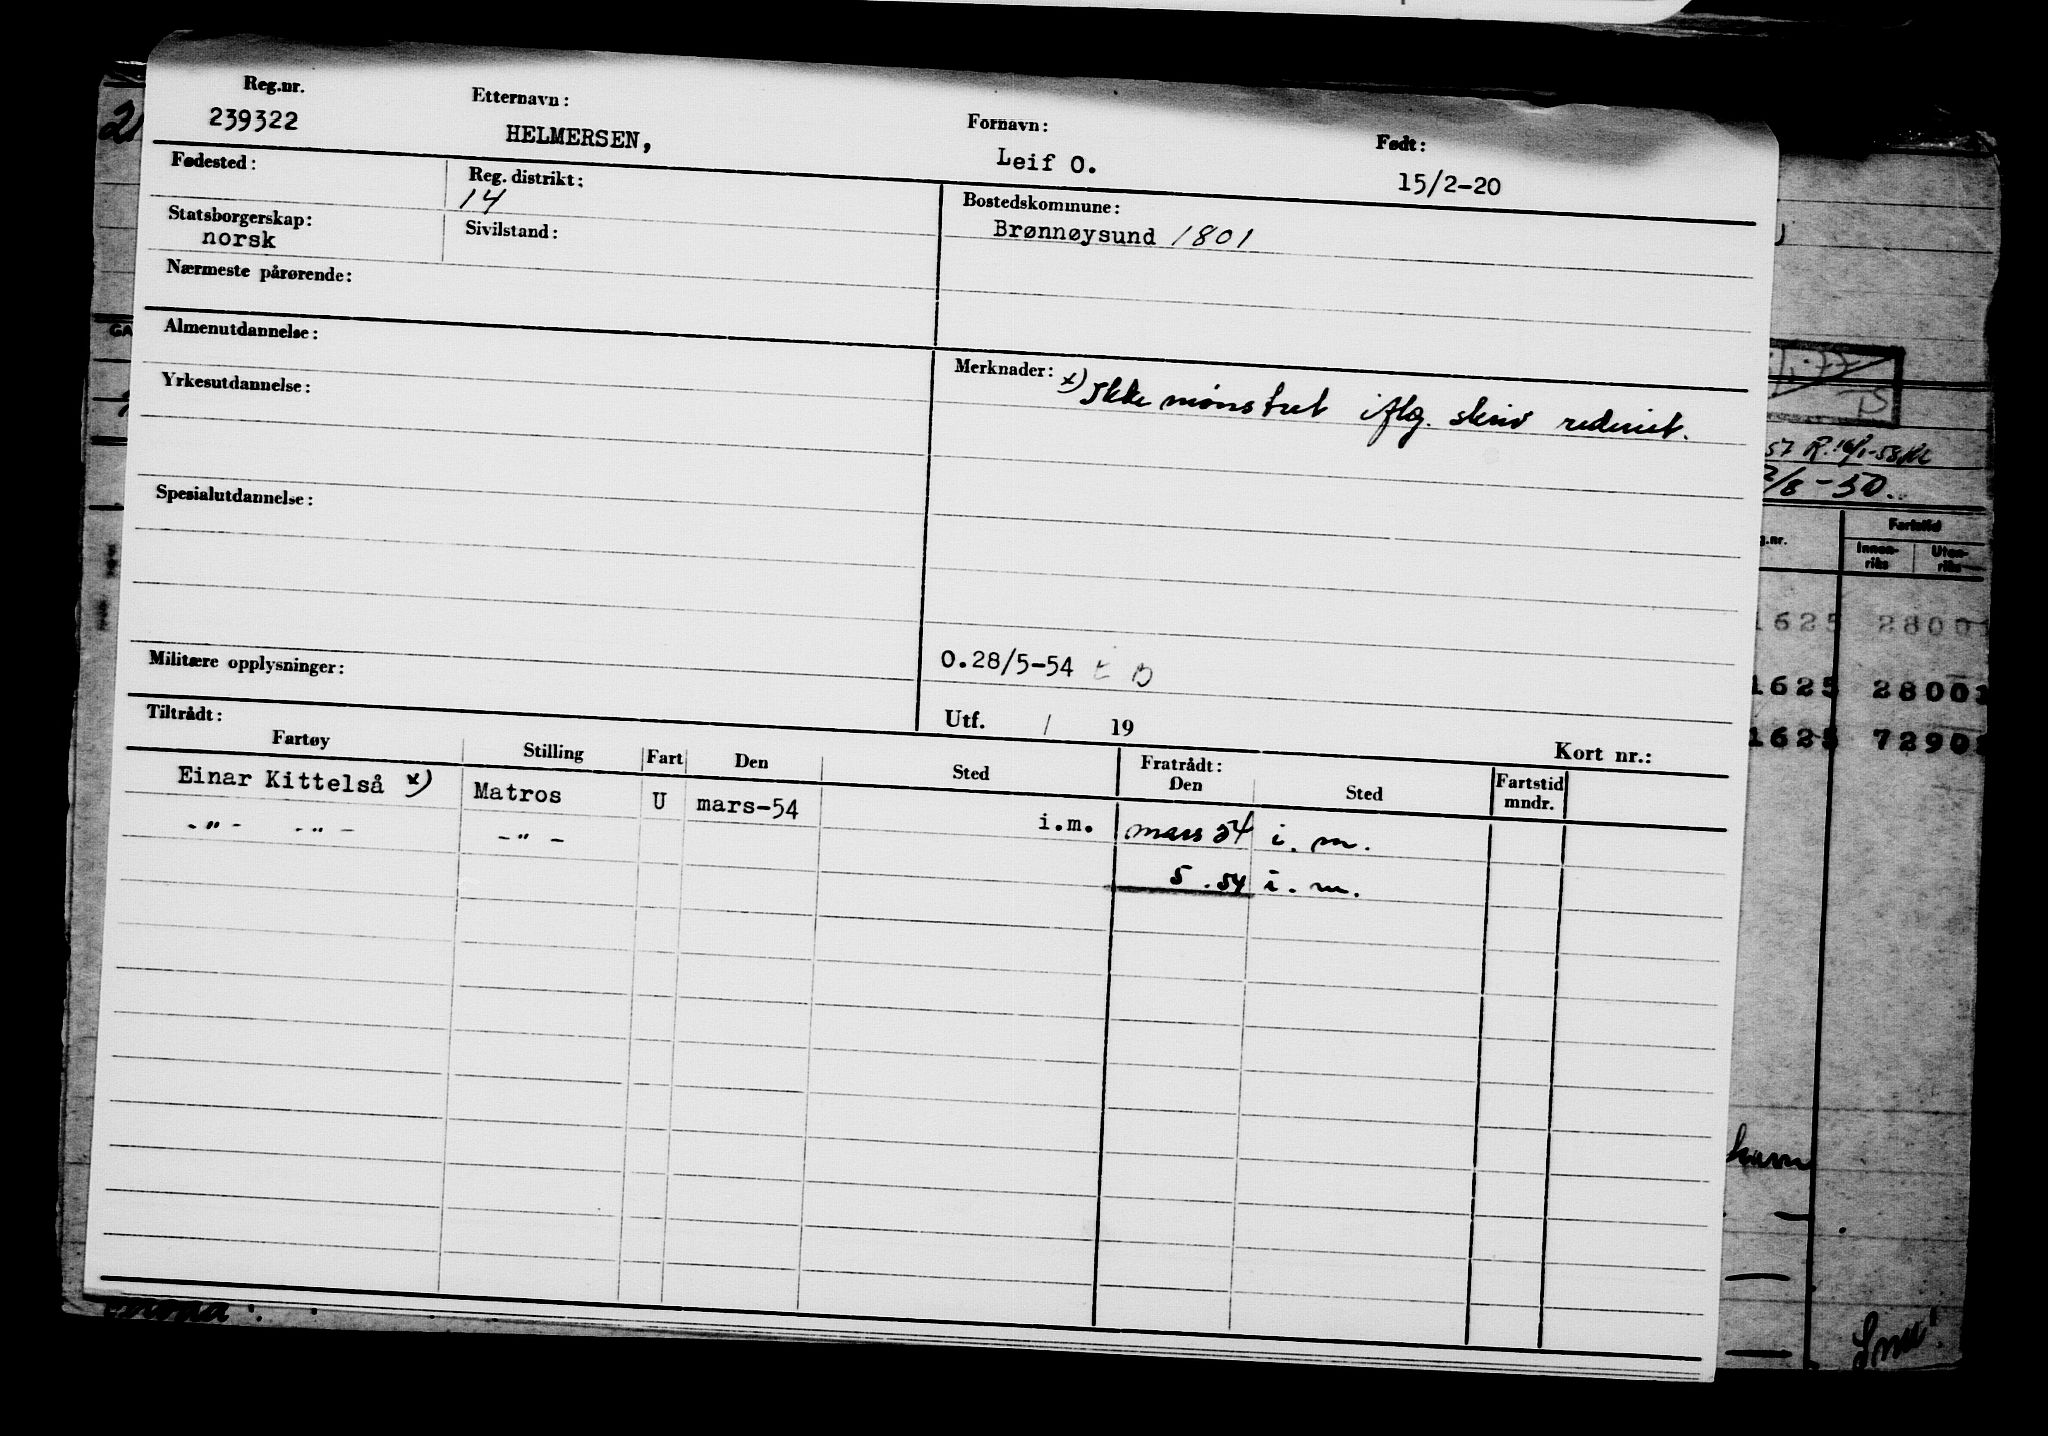 Reg.nr. Etternavn: Fornavn: Født:
239322 HELMERSEN, Leif O. 15/2-20
Fødested: Reg. distrikt: Bostedskommune:
14 Brønnøysund 1801
Statsborgerskap: Sivilstand:
norsk
Nærmeste pårørende:
Almenutdannelse: Merknader: x) Ikke mønstret iflg. skriv rederiet.
Yrkesutdannelse:
Spesialutdannelse:
Militære opplysninger: O.28/5-54
Utf. / 19 Kort nr.:
Tiltrådt: Fratrådt:
Fartøy Stilling Fart Den Sted Den Sted Fartstid mndr.
Einar Kittelså x) Matros U mars-54 i.m. mars 54 i.m.
-"- -"- -"- 5.54 i.m.
57 R. 16/1-58
/8-50.
g.nr. Fartstid
Innen-riks Uten-riks
1625 2800
1625 28001
1625 7290
havn